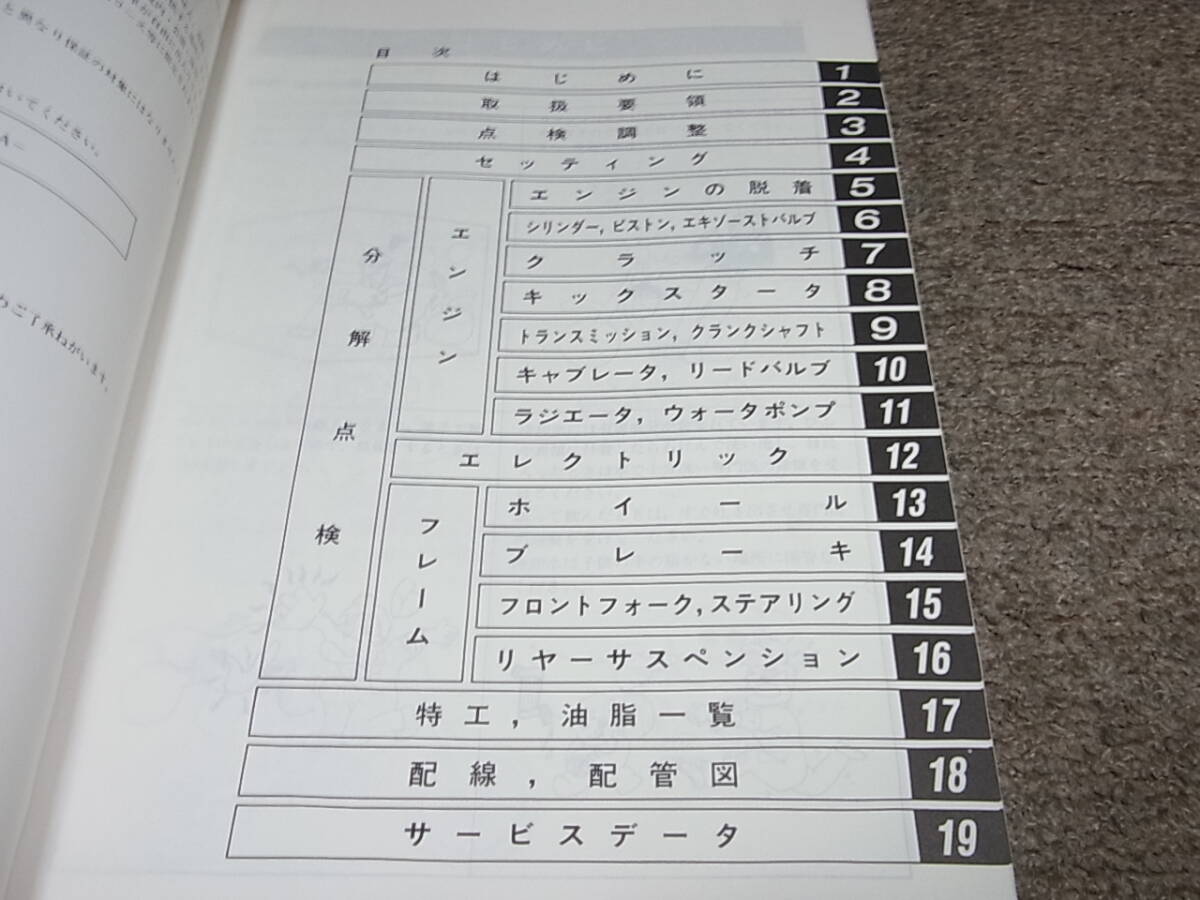 と異なり保証の対象にはなりません
いてください。
A–
ご了承ねがいます。
目 次
はじめに 1
取扱要領 2
点検調整 3
セッティング 4
分解点検
エンジン
エンジンの脱着 5
シリンダー, ピストン, エキゾーストバルブ 6
クラッチ 7
キックスタータ 8
トランスミッション, クランクシャフト 9
キャブレータ, リードバルブ 10
ラジエータ, ウォータポンプ 11
エレクトリック 12
フレーム
ホイール 13
ブレーキ 14
フロントフォーク, ステアリング 15
リヤーサスペンション 16
特工, 油脂一覧 17
配線, 配管図 18
サービスデータ 19